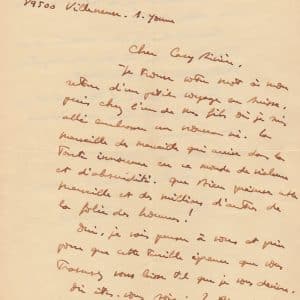 89500 Villeneuve s. Yonne
Cher
Je trouve votre mot à mon
retour d'un petit voyage en Suisse,
puis chez l'un de mes fils où je suis
allé embrasser un nouveau né. La
merveille de merveille qui arrive dans la
toute innocence en ce monde de violence
et d'absurdité. Que Dieu préserve cette
merveille et des millions d'autres de
la folie des hommes !
Oui, je vais penser à vous et prier
pour que cette terrible épreuve que vous
traversez vous